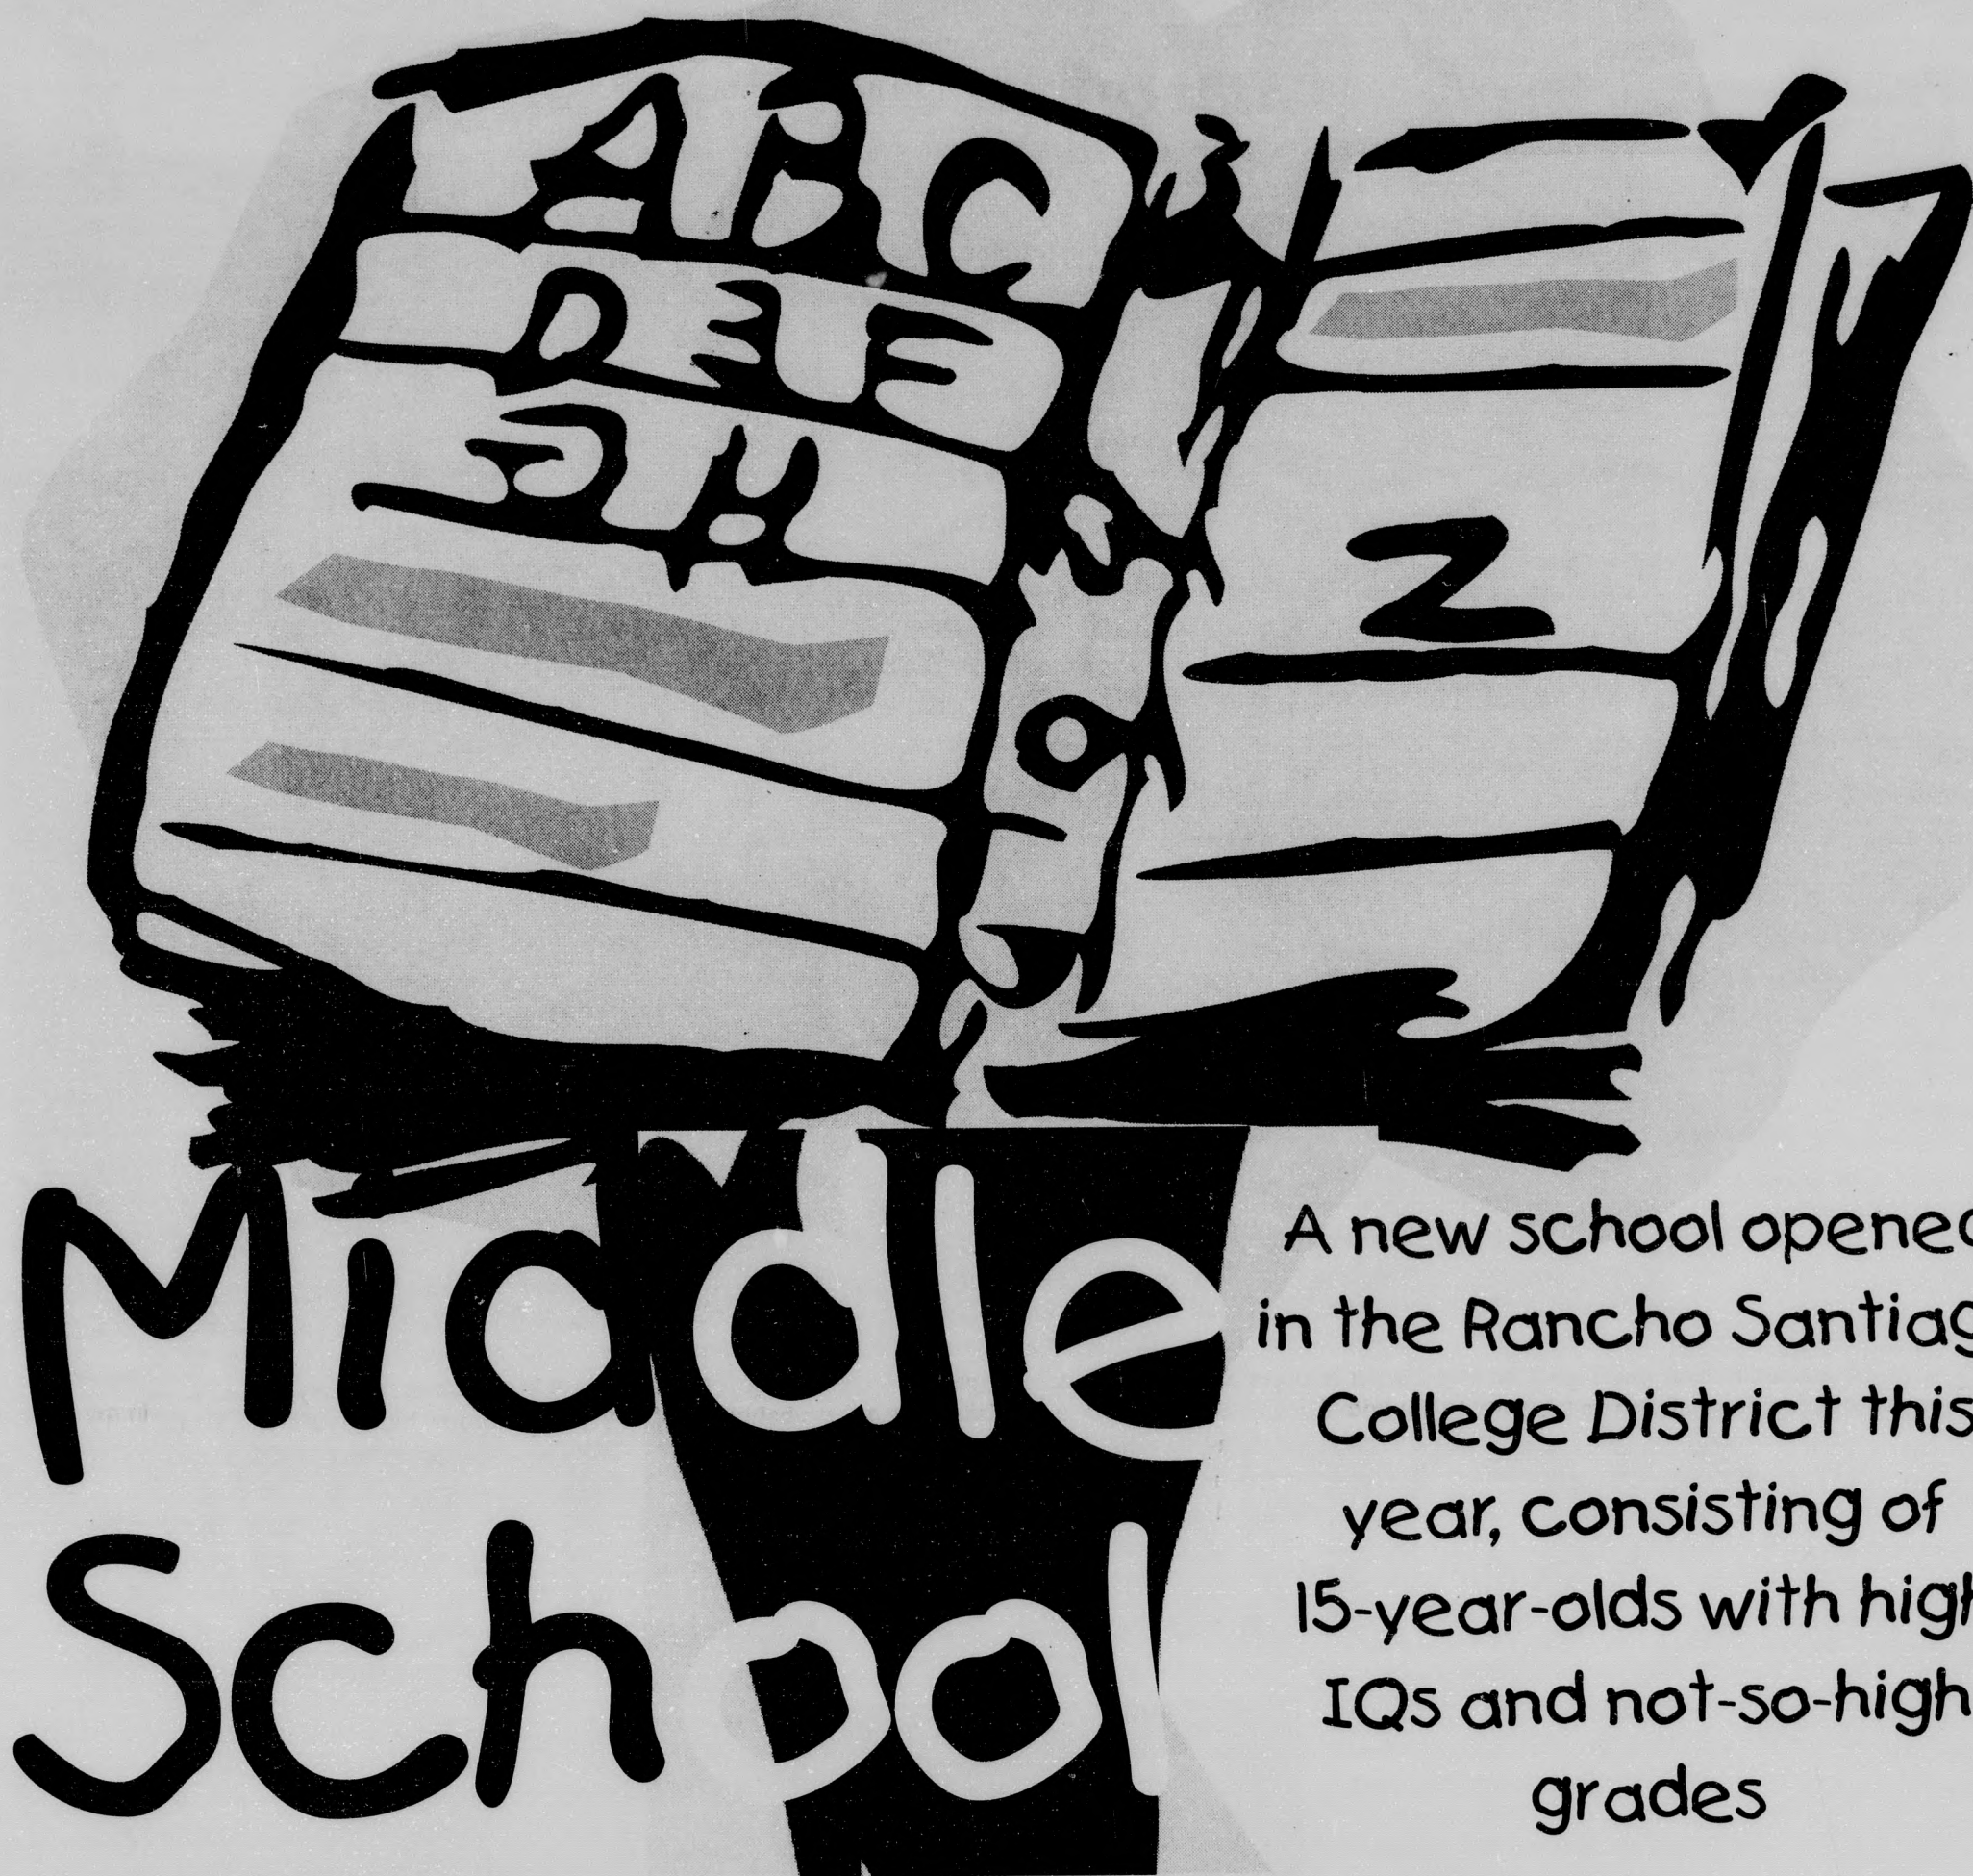 ABC
DEF
GH
Z
Middle
School
A new school opened
in the Rancho Santiag
College District this
year, consisting of
15-year-olds with high
IQs and not-so-high
grades